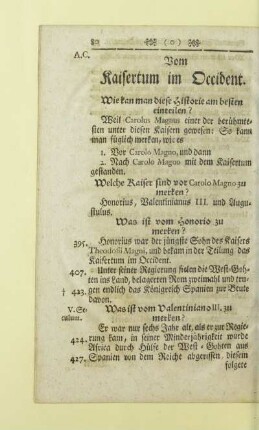 80 ( 0 )
A.C.
Vom
Kaisertum im Occident.
Wie kan man diese Historie am besten
einteilen?
Weil Carolus Magnus einer der berühmte-
sten unter diesen Kaisern gewesen: So kann
man füglich merken, wie es
1. Vor Carolo Magno, und dann
2. Nach Carolo Magno mit dem Kaisertum
gestanden.
Welche Kaiser sind vor Carolo Magno zu
merken?
Honorius, Valentinianus III. und Augu-
stulus.
Was ist vom Honorio zu
merken?
395. Honorius war der jüngste Sohn des Kaisers
Theodosii Magni, und bekam in der Teilung das
Kaisertum im Occident.
407. Unter seiner Regierung fielen die West-Goh-
ten ins Land, belagerten Rom zweimahl und tru-
† 423. gen endlich das Königreich Spanien zur Beute
davon.
V. Se- Was ist vom Valentiniano III. zu
culum. merken?
Er war nur sechs Jahr alt, als er zur Regie-
424. rung kam, in seiner Minderjährigkeit wurde
Africa durch Hülfe der West-Gohten aus
427. Spanien von dem Reiche abgerissen diesem
folgete